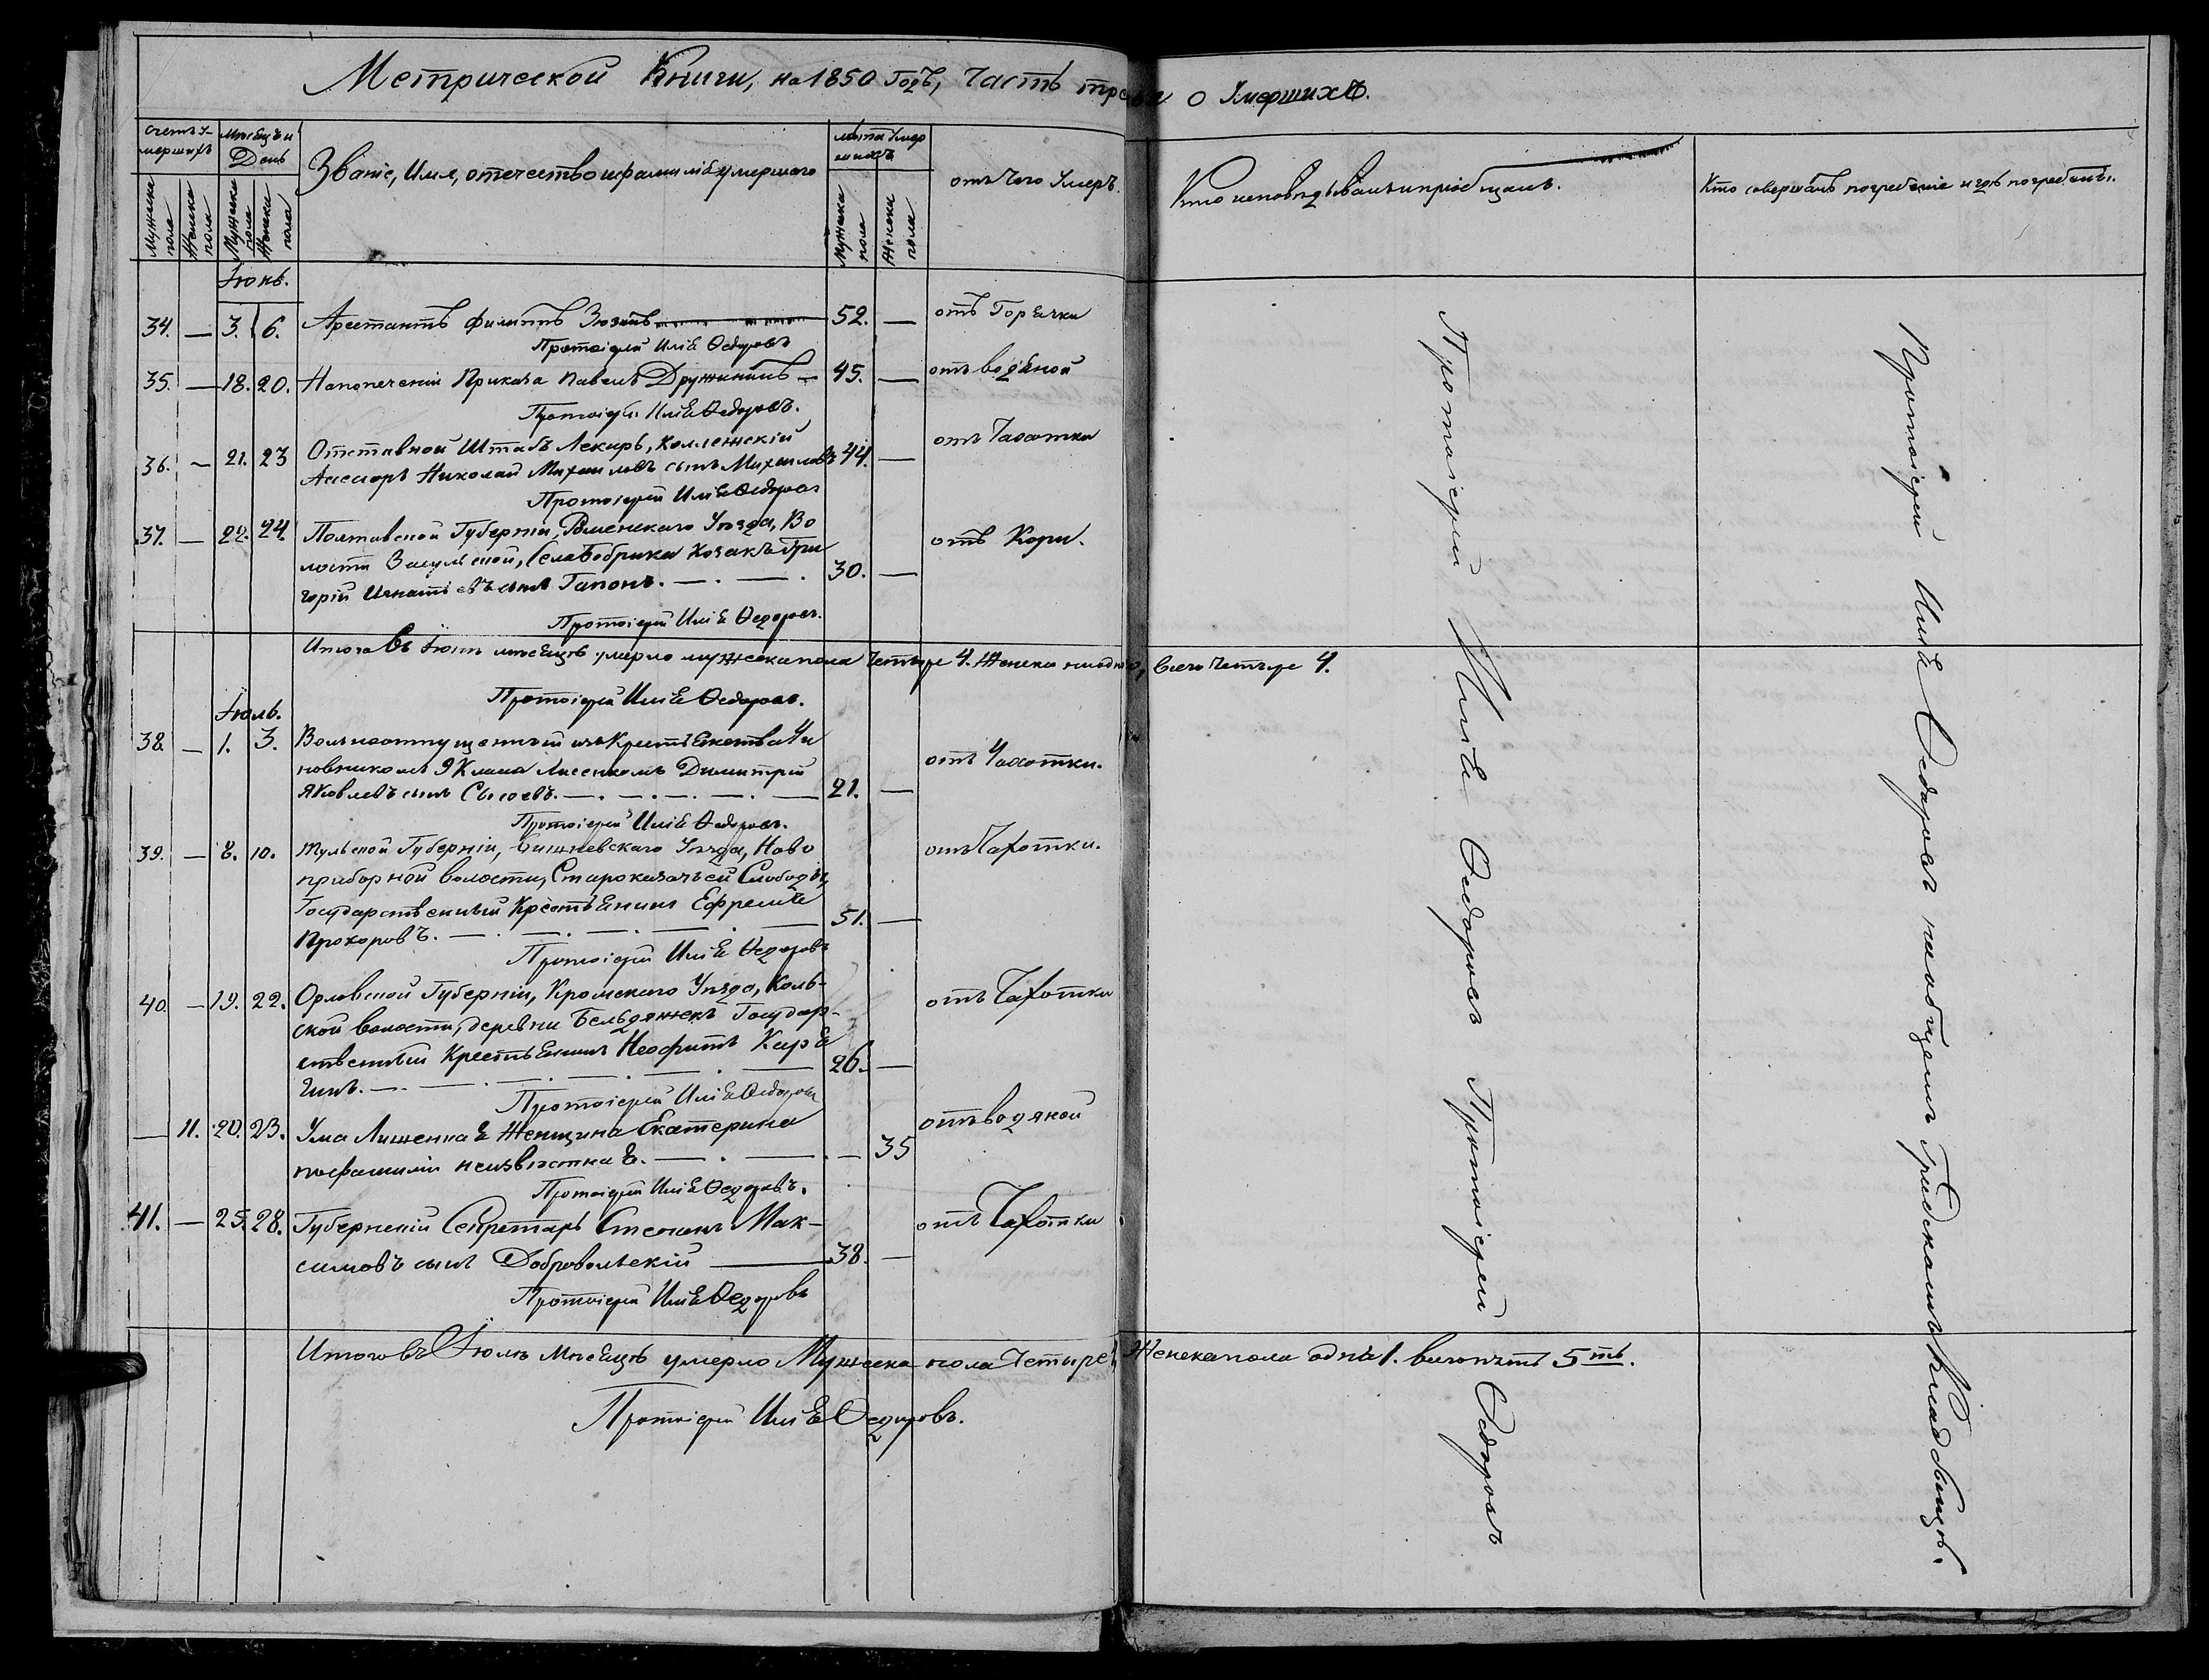 Метрической Книги, на 1850 Годъ, Часть третья о Умершихъ.
Счетъ у-
мершихъ
Мѣсяцъ и
День
Званіе, Имя, отечество и фамилія умершаго
Лѣта Умер
шихъ
отъ Чего Умеръ.
Кто исповѣдывалъ и пріобщалъ.
Кто совершалъ погребеніе и гдѣ погребенъ.
Мужеска пола
Женска пола
Мужеска пола
Женска пола
Мужеска пола
Женска пола
Іюнь.
34. — 3. 6. Арестантъ Филиппъ 52. — отъ Горячки
Протоіерей Илія Ѳедоровъ
35. — 18. 20. На попеченіи Приказа Павелъ Дружининъ — 45. — отъ водяной
Протоіерей Илія Ѳедоровъ.
36. — 21. 23 Отставной Штабъ Лекарь, Коллежскій отъ Чахотки
Ассесоръ Николай Михаиловъ сынъ Михаиловъ 44. —
Протоіерей Илія Ѳедоровъ
37. — 22. 24. Полтавской Губерніи, Роменскаго Уѣзда, Во отъ Кори.
лости Засульской, Села Бобрика Козакъ Гри
горій Игнатіевъ сынъ Гапонъ. — . — . 30. —
Протоіерей Илія Ѳедоровъ.
Итого въ Іюнѣ мѣсяцѣ умерло мужеска пола четыре 4. Женска ниодно, всего четыре 4.
Протоіерей Илія Ѳедоровъ.
Іюль.
38. — 1. 3. Вольноотпущенный изъ Крестьянства Чи отъ Чахотки.
новникомъ Лисенкомъ Димитрій
Яковлевъ сынъ Сысоевъ. — . — . — . — . — 21. —
Протоіерей Илія Ѳедоровъ.
39. — 8. 10. Тульской Губерніи, Уѣзда, Ново отъ Чахотки.
приборной волости, Староказачьей Слободы,
Государственный Крестьянинъ Ефремъ 51. —
Прохоровъ. — . — . — . — . —
Протоіерей Илія Ѳедоровъ
40. — 19. 22. Орловской Губерніи, Кромскаго Уѣзда, отъ Чахотки
ской волости, деревни Бельдяжекъ Государ-
ственный Крестьянинъ Неофитъ Каря 26. —
гинъ. — . — . — . — . — . —
Протоіерей Илія Ѳедоровъ
— 11. 20. 23. Ума Лишенная Женщина Екатерина отъ водяной
по фамиліи неизвѣстная. — . — . — 35
Протоіерей Илія Ѳедоровъ.
41. — 25. 28. Губернскій Секретарь Степанъ Мак- отъ Чахотки
симовъ сынъ Добровольскій — 38. —
Протоіерей Илія Ѳедоровъ
Итого въ Іюлѣ Мѣсяцѣ умерло Мужеска пола Четыре, Женска пола одна 1. всего пять 5ть.
Протоіерей Илія Ѳедоровъ.
Протоіерей Илія Ѳедоровъ Протоіерей Ѳедоровъ
Протоіерей Илія Ѳедоровъ на общемъ Градскомъ Кладбищѣ.